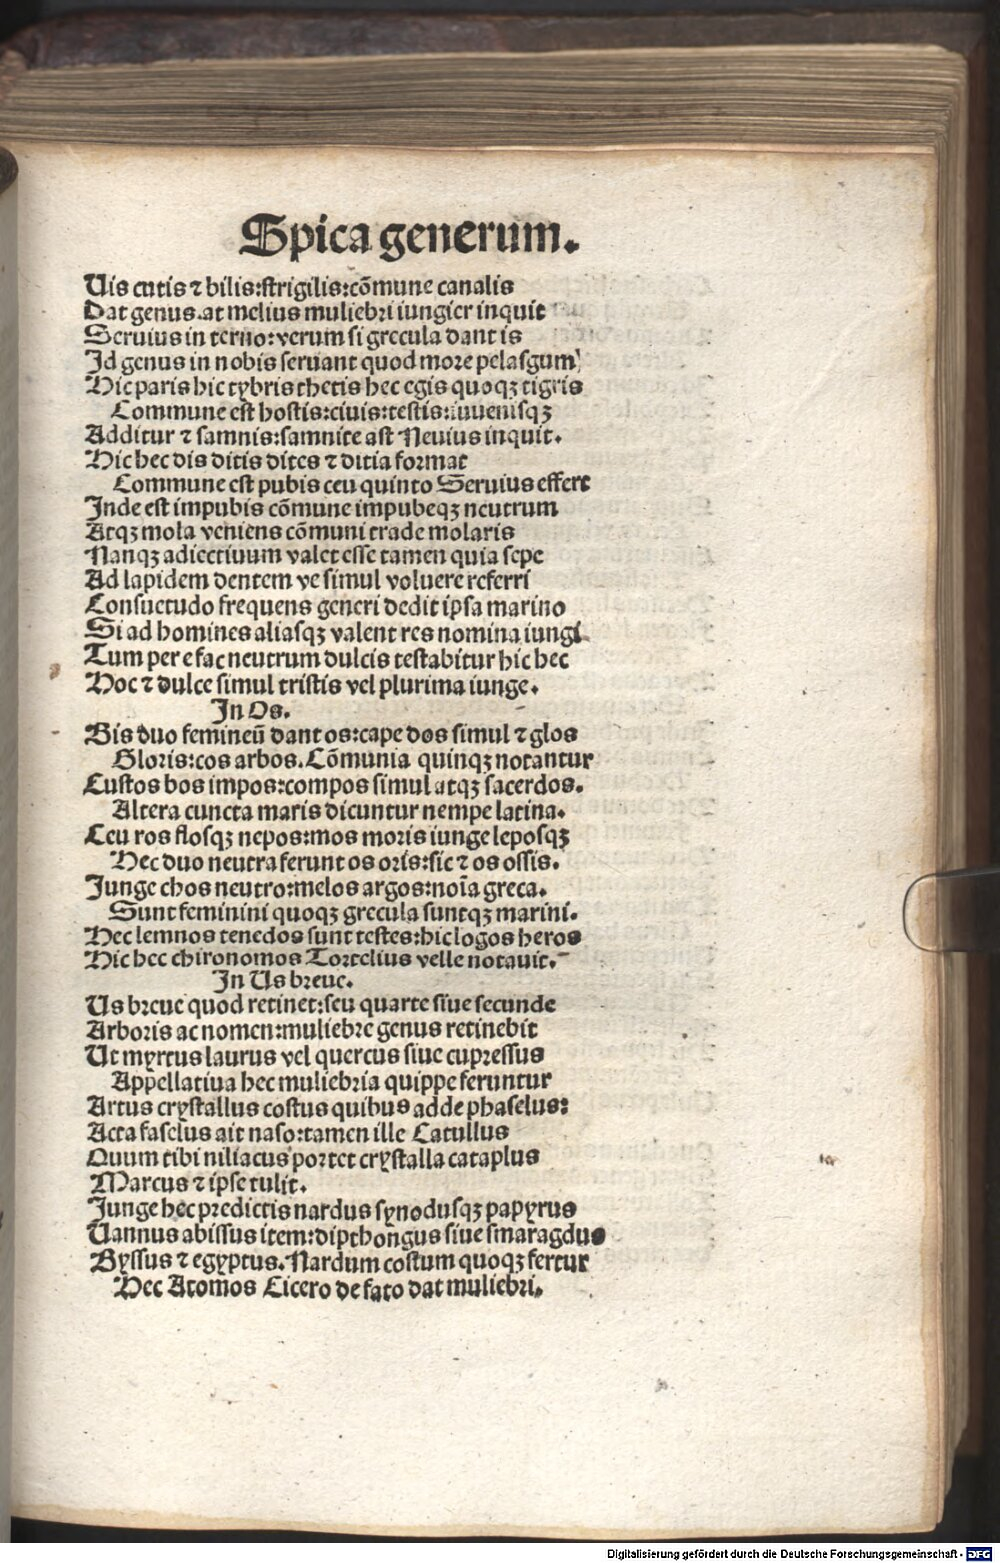 Spica generum.
Uis cutis ⁊ bilis:strigilis:cõmune canalis
Dat genus.at melius muliebri iungier inquit
Seruius in terno:verum si grecula dant is
Id genus in nobis seruant quod more pelasgum
Hic paris hic tybris thetis hec egis quoqꝫ tigris
Commune est hostis:ciuis:testis:iuuenisqꝫ
Additur ⁊ samnis:samnite ast Neuius inquit.
Hic hec dis ditis dites ⁊ ditia format
Commune est pubis ceu quinto Seruius effert
Inde est impubis cõmune impubeqꝫ neutrum
Atqꝫ mola veniens cõmuni trade molaris
Nanqꝫ adiectiuum valet esse tamen quia sepe
Ad lapidem dentem ve simul voluere referri
Consuetudo frequens generi dedit ipsa marino
Si ad homines aliasqꝫ valent res nomina iungi
Tum per e fac neutrum dulcis testabitur hic hec
Hoc ⁊ dulce simul tristis vel plurima iunge.
In Os.
Bis duo femineũ dant os:cape dos simul ⁊ glos
Gloris:cos arbos. Cõmunia quinqꝫ notantur
Custos bos impos:compos simul atqꝫ sacerdos.
Altera cuncta maris dicuntur nempe latina.
Ceu ros flosqꝫ nepos:mos moris iunge leposqꝫ
Hec duo neutra ferunt os oris:sic ⁊ os ossis.
Iunge chos neutro:melos argos:noĩa greca.
Sunt feminini quoqꝫ grecula suntqꝫ marini.
Hec lemnos tenedos sunt testes:hic logos heros
Hic hec chironomos Tortelius velle notauit.
In Us breue.
Us breue quod retinet:seu quarte siue secunde
Arboris ac nomen:muliebre genus retinebit
Ut myrtus laurus vel quercus siue cupressus
Appellatiua hec muliebria quippe feruntur
Artus crystallus costus quibus adde phaselus:
Acta faselus ait naso:tamen ille Catullus
Quum tibi niliacus portet crystalla cataplus
Marcus ⁊ ipse tulit.
Iunge hec predictis nardus synodusqꝫ papyrus
Uannus abissus item:dipthongus siue smaragdus
Byssus ⁊ egyptus. Nardum costum quoqꝫ fertur
Hec Atomos Cicero de fato dat muliebri.
Digitalisierung gefördert durch die Deutsche Forschungsgemeinschaft - DFG